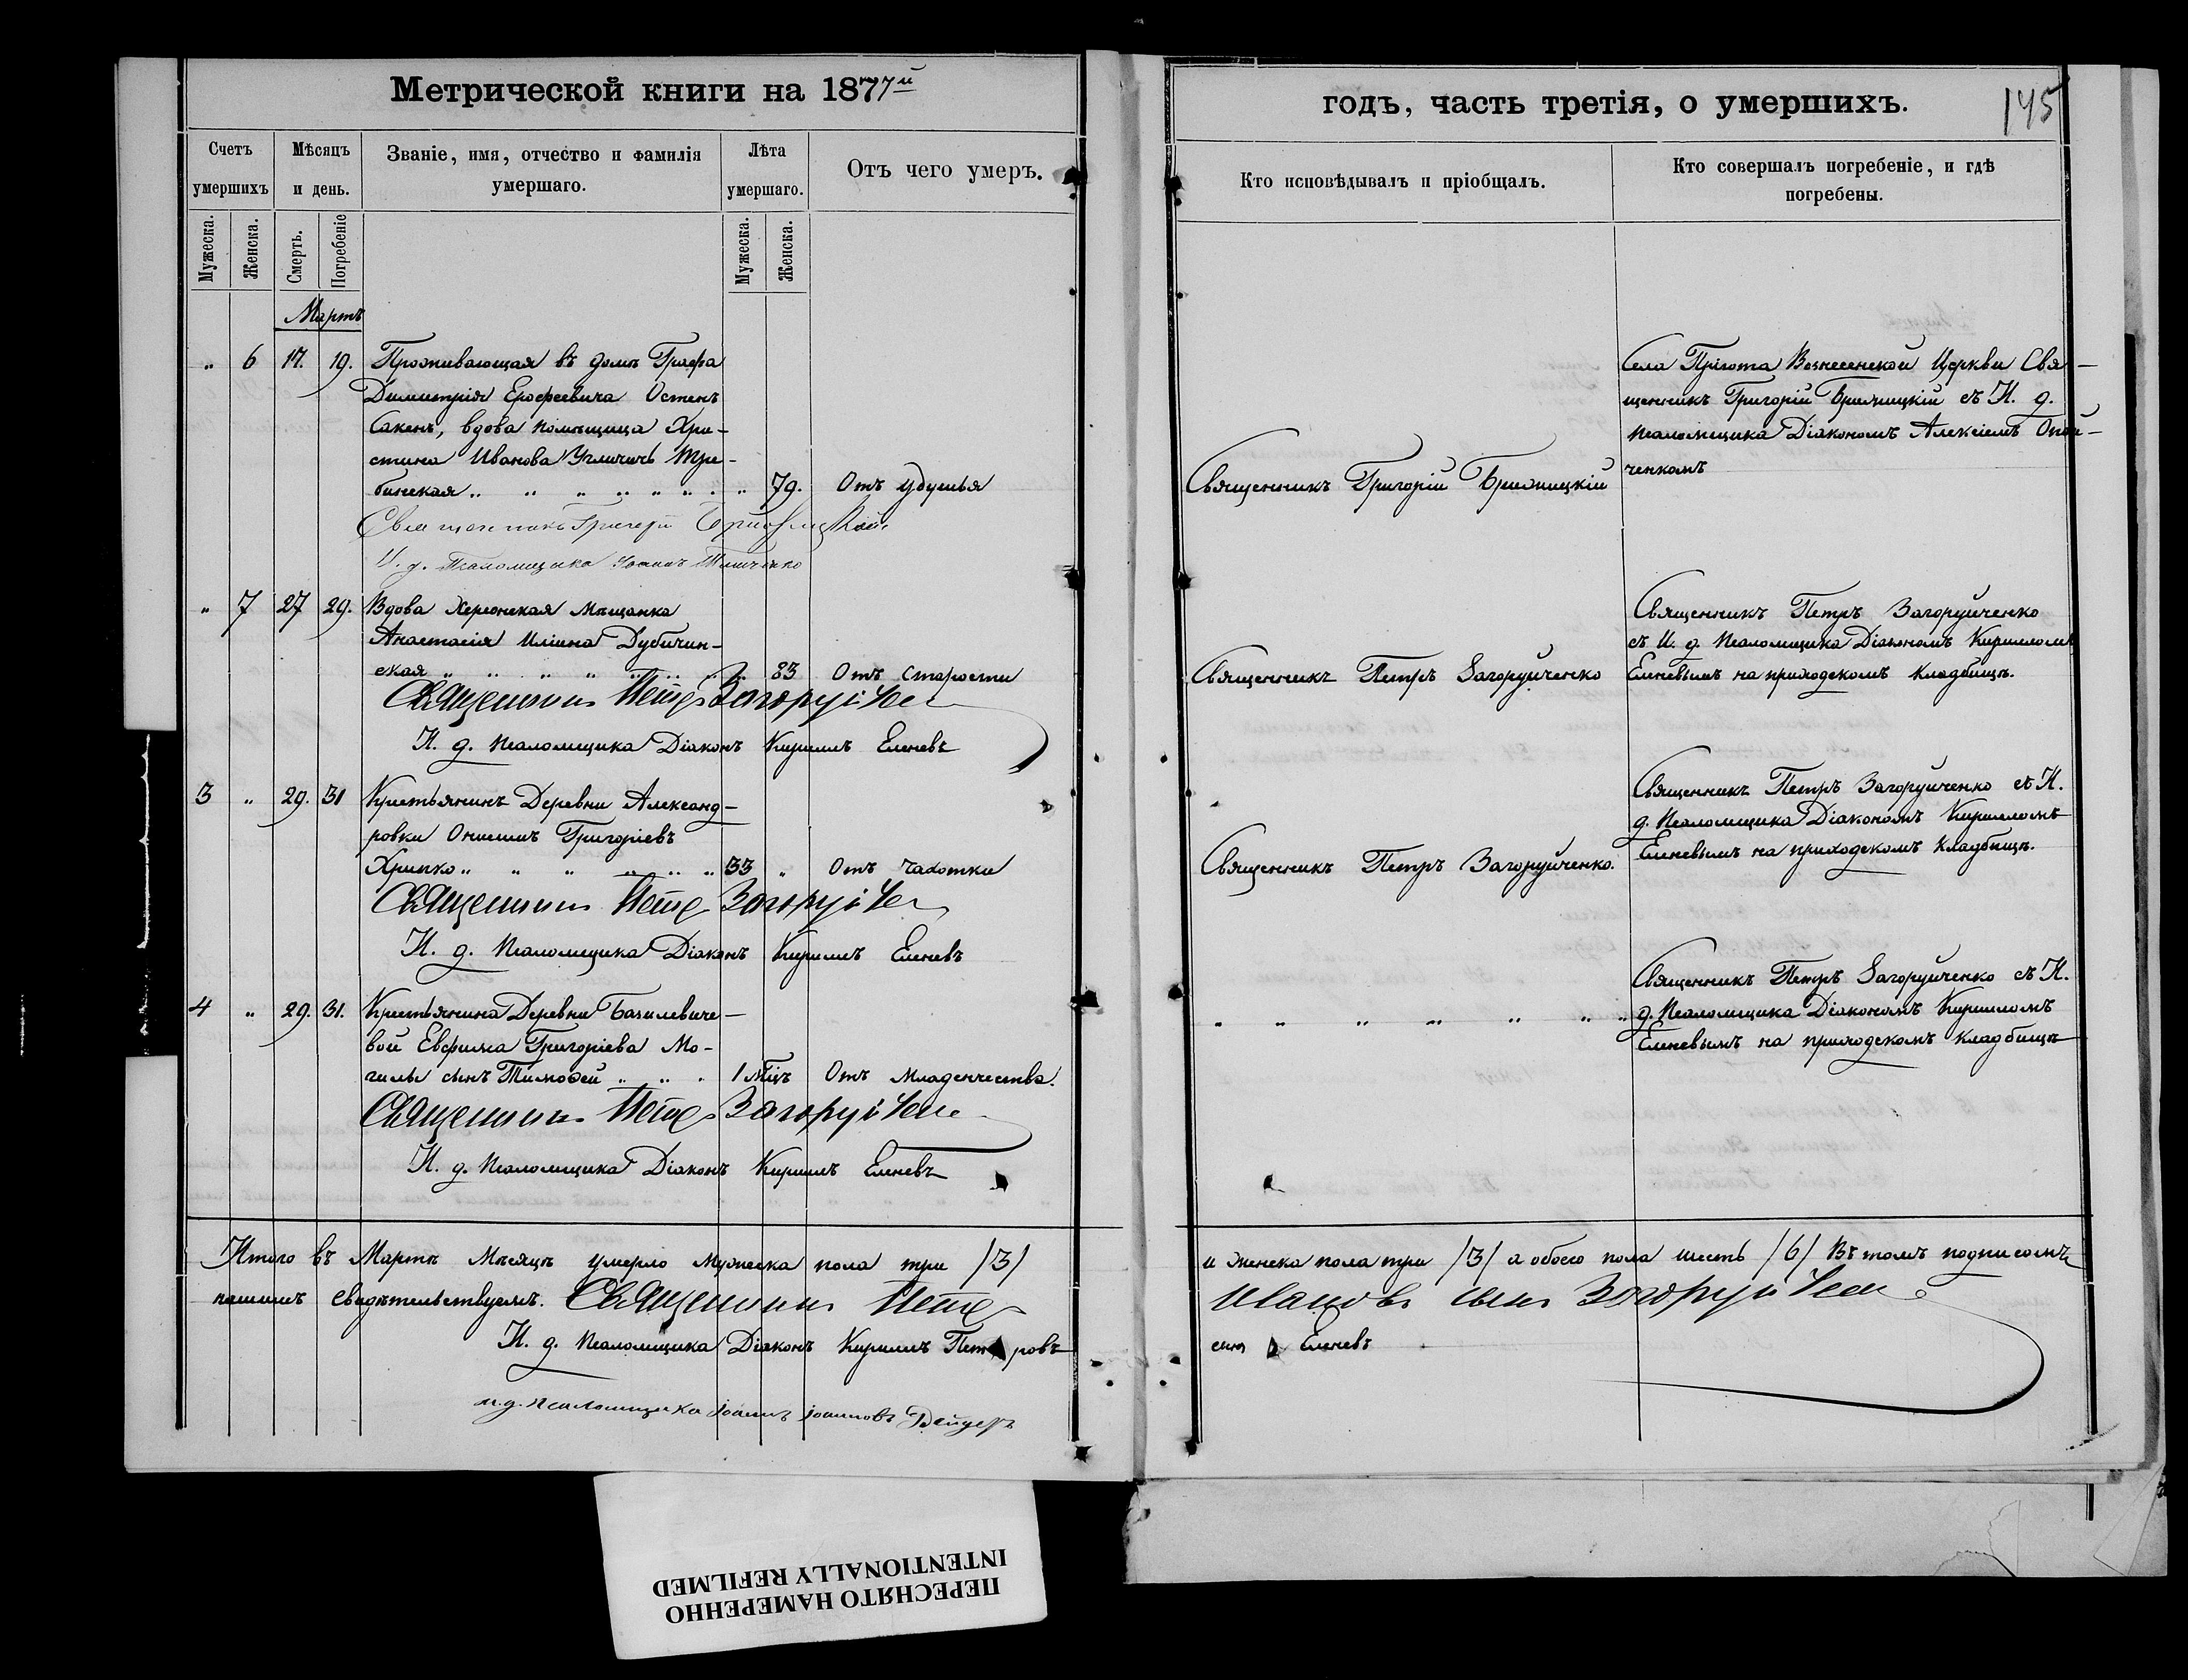 Метрической книги на 1877й
годъ, часть третія, о умершихъ.
145
Счетъ умершихъ
Мѣсяцъ и день.
Званіе, имя, отчество и фамилія умершаго.
Лѣта умершаго.
Отъ чего умеръ.
Кто исповѣдывалъ и пріобщалъ.
Кто совершалъ погребеніе, и гдѣ погребены.
Мужеска.
Женска.
Смерть.
Погребеніе
Мужеска.
Женска.
Мартъ
" 6 17. 19. Проживающая въ домѣ Графа
Димитрія Ерофеевича Остенъ
Сакенъ, вдова помѣщица Хри-
стина Иванова Угличичъ Тре-
бинская " " " " " " " " 79. Отъ удушья
Священникъ Григорій
И. д. Псаломщика Іоаннъ
Священникъ Григорій Брижицкій
Села Пріюта Вознесенской Церкви Свя-
щенникъ Григорій Брижицкій съ И. д.
Псаломщика Діакономъ Алексіемъ
ченкомъ
" 7 27 29. Вдова Херсонская Мѣщанка
Анастасія Иліина Дубичин-
ская " " " " " " " " 83 Отъ Старости
Священникъ Петръ Загоруйченко
И. д. Псаломщика Діаконъ Кириллъ Еленевъ
Священникъ Петръ Загоруйченко
Священникъ Петръ Загоруйченко
съ И. д. Псаломщика Діакономъ Кирилломъ
Еленевымъ на приходскомъ кладбищѣ.
3 " 29. 31 Крестьянинъ Деревни Александ-
ровки Онисимъ Григоріевъ
Хрипко " " " " " " 33 " Отъ чахотки
Священникъ Петръ Загоруйченко
И. д. Псаломщика Діаконъ Кириллъ Еленевъ
Священникъ Петръ Загоруйченко.
Священникъ Петръ Загоруйченко съ И.
д. Псаломщика Діакономъ Кирилломъ
Еленевымъ на приходскомъ кладбищѣ.
4 " 29. 31. Крестьянина Деревни Базилевиче-
вой Евфима Григоріева Мо-
гилы сынъ Тимоѳей " " " 1 мѣц Отъ младенчества.
Священникъ Петръ Загоруйченко
И. д. Псаломщика Діаконъ Кириллъ Еленевъ
" " " " " " "
Священникъ Петръ Загоруйченко съ И.
д. Псаломщика Діакономъ Кирилломъ
Еленевымъ на приходскомъ кладбищѣ
Итого въ Мартѣ Мѣсяцѣ умерло мужеска пола три /3/
и женска пола три /3/ а обоего пола шесть /6/ Въ томъ подписомъ
нашимъ свидѣтельствуемъ. Священникъ Петръ
Ивановъ сынъ Загоруйченко
И. д. Псаломщика Діаконъ Кириллъ Петровъ
сынъ Еленевъ
и. д. псаломщика Іоаннъ Іоанновъ
ПЕРЕСНЯТО НАМЕРЕННО
INTENTIONALLY REFILMED